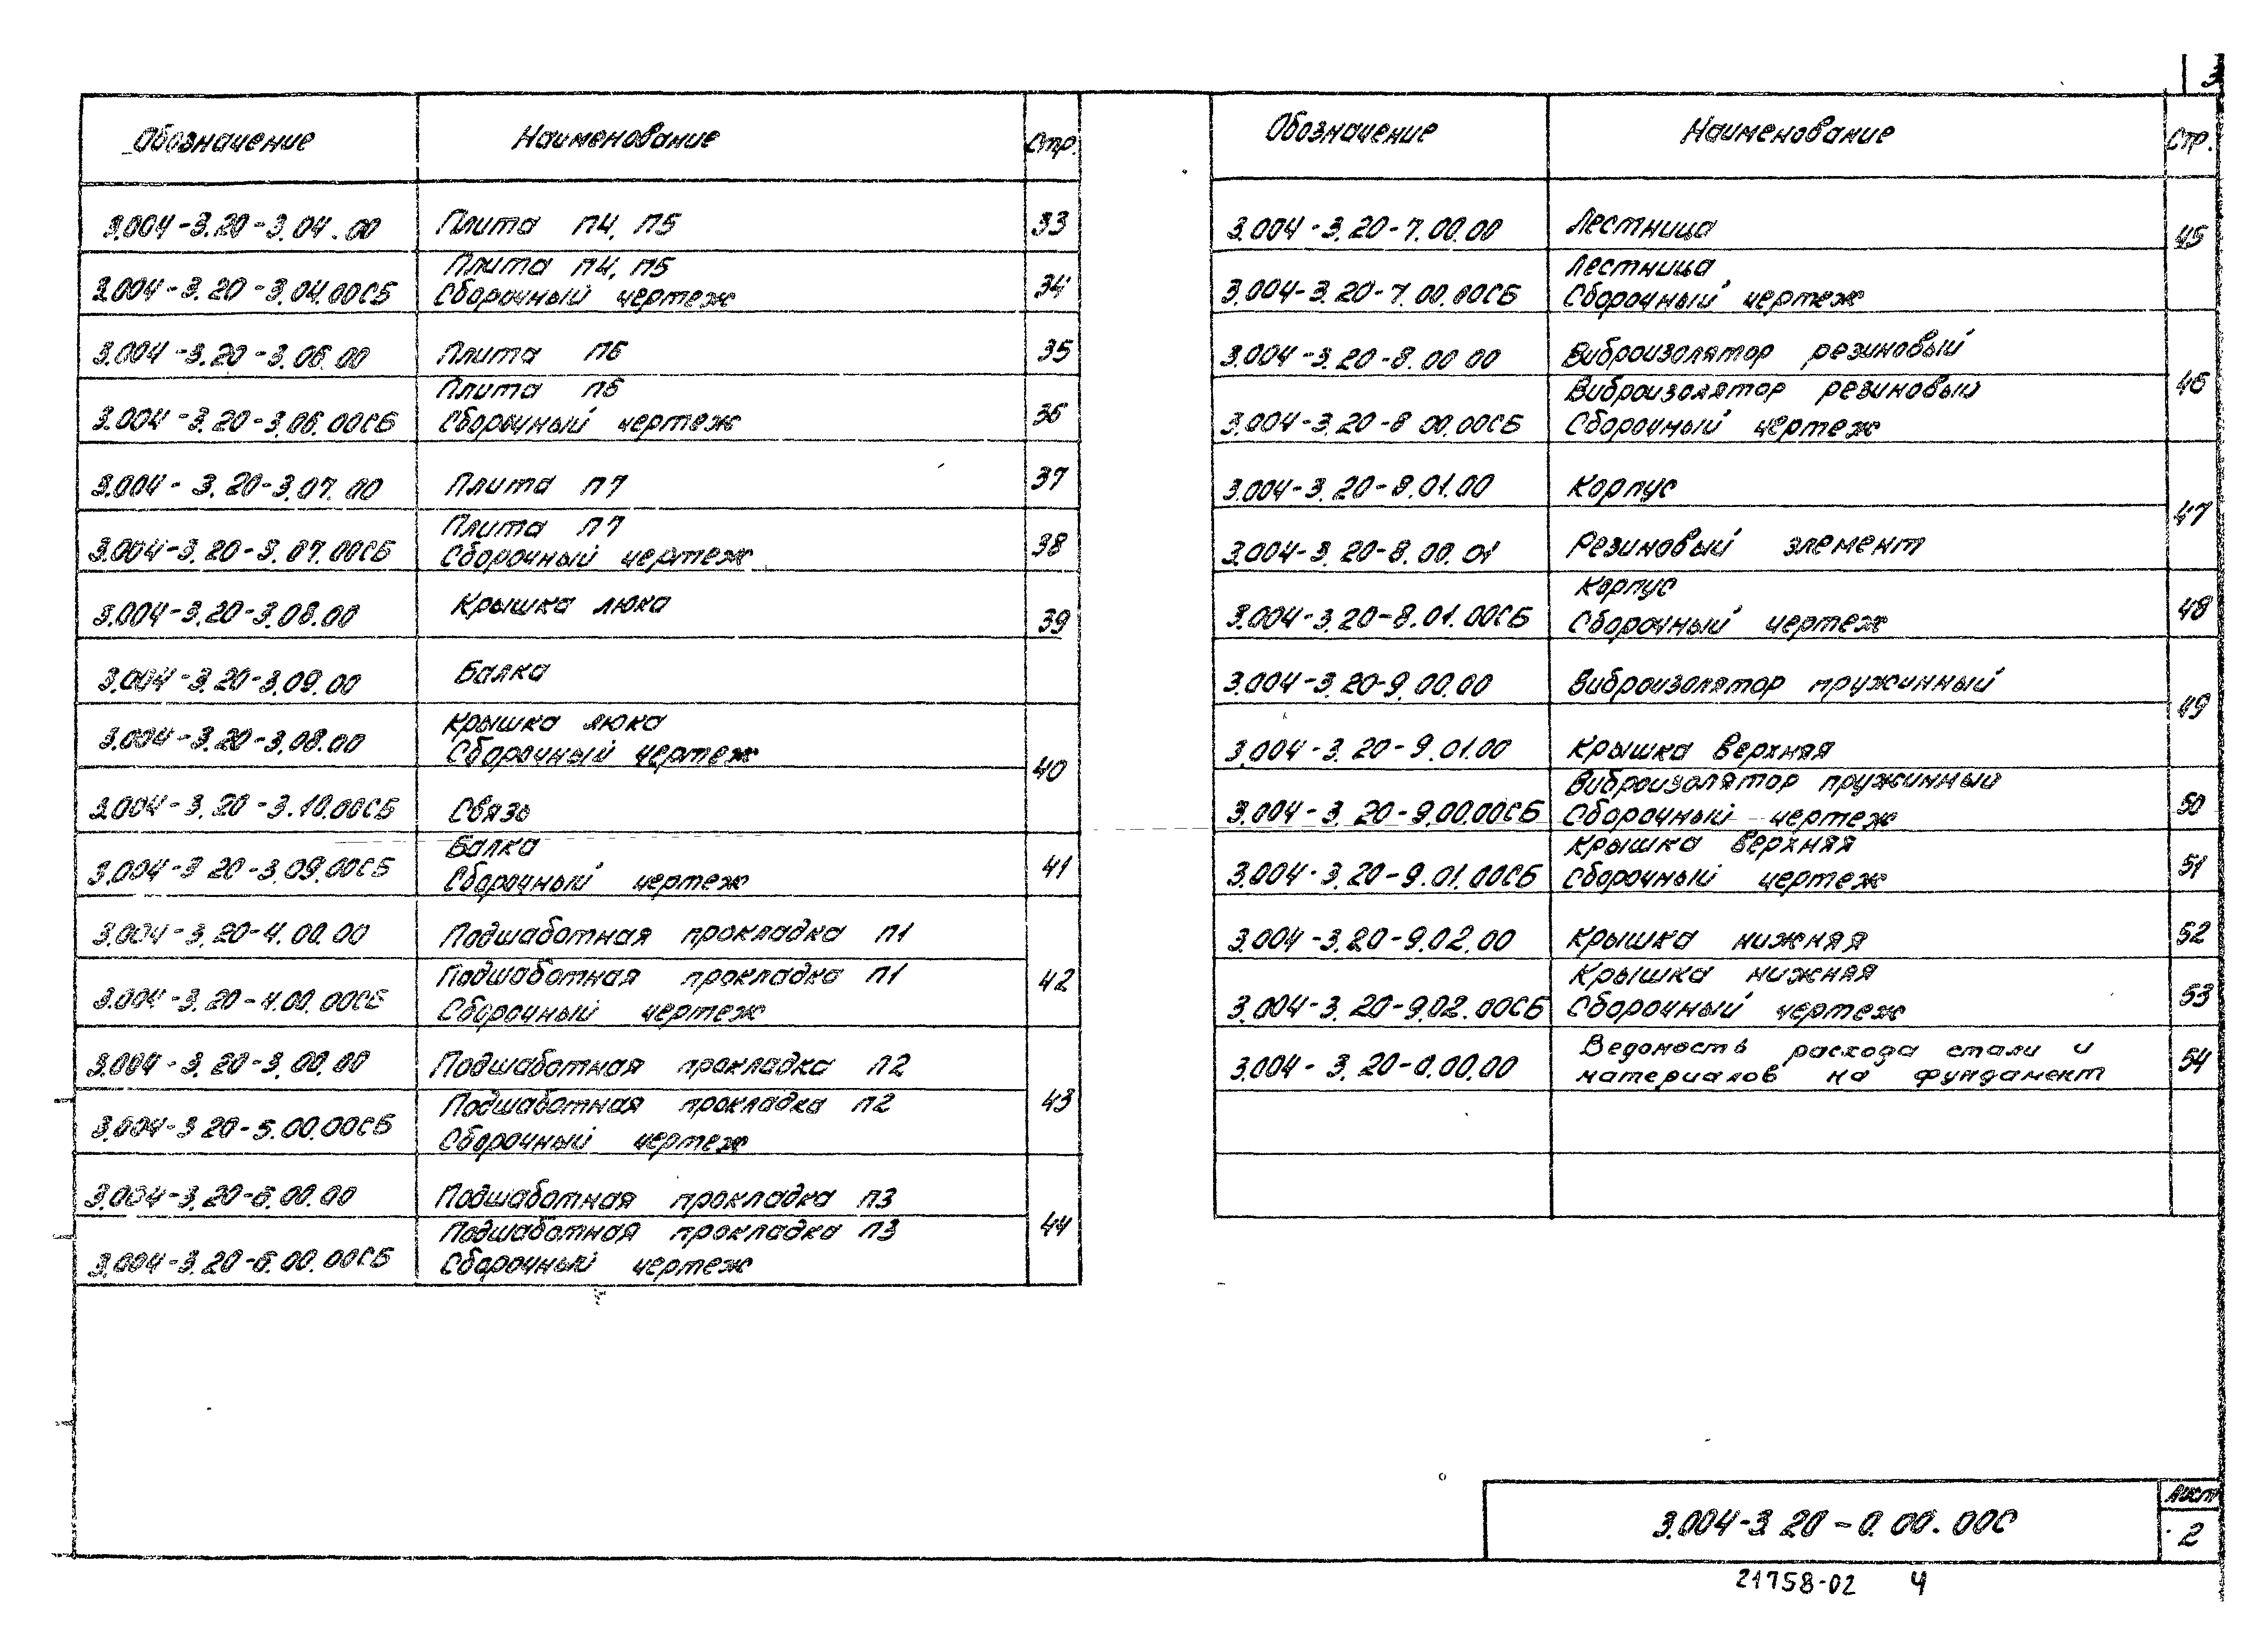 3
Обозначение Наименование Стр.
3.004-3.20-3.04.00 Плита П4, П5 33
Плита П4, П5
3.004-3.20-3.04.00СБ Сборочный чертеж 34
3.004-3.20-3.06.00 Плита П6 35
Плита П6
3.004-3.20-3.06.00СБ Сборочный чертеж 36
3.004-3.20-3.07.00 Плита П7 37
Плита П7
3.004-3.20-3.07.00СБ Сборочный чертеж 38
3.004-3.20-3.08.00 Крышка люка 39
3.004-3.20-3.09.00 Балка
Крышка люка
3.004-3.20-3.08.00 Сборочный чертеж
40
3.004-3.20-3.10.00СБ Связь
Балка
3.004-3.20-3.09.00СБ Сборочный чертеж 41
3.004-3.20-4.00.00 Подшаботная прокладка П1
Подшаботная прокладка П1 42
3.004-3.20-4.00.00СБ Сборочный чертеж
3.004-3.20-3.00.00 Подшаботная прокладка П2
Подшаботная прокладка П2 43
3.004-3.20-5.00.00СБ Сборочный чертеж
3.004-3.20-6.00.00 Подшаботная прокладка П3
Подшаботная прокладка П3 44
3.004-3.20-6.00.00СБ Сборочный чертеж
Обозначение Наименование Стр.
3.004-3.20-7.00.00 Лестница 45
Лестница
3.004-3.20-7.00.00СБ Сборочный чертеж
3.004-3.20-8.00 00 Виброизолятор резиновый
Виброизолятор резиновый 46
3.004-3.20-8 00.00СБ Сборочный чертеж
3.004-3.20-8.01.00 Корпус
47
3.004-3.20-8.00.01 Резиновый элемент
Корпус
3.004-3.20-8.01.00СБ Сборочный чертеж 48
3.004-3.20-9.00.00 Виброизолятор пружинный
49
3.004-3.20-9.01.00 Крышка верхняя
Виброизолятор пружинный
3.004-3.20-9.00.00СБ Сборочный чертеж 50
Крышка верхняя
3.004-3.20-9.01.00СБ Сборочный чертеж 51
3.004-3.20-9.02.00 Крышка нижняя 52
Крышка нижняя
3.004-3.20-9.02.00СБ Сборочный чертеж 53
Ведомость расхода стали и
3.004-3.20-0.00.00 материалов на фундамент 54
Лист
3.004-3.20-0.00.00С 2
21758-02 4